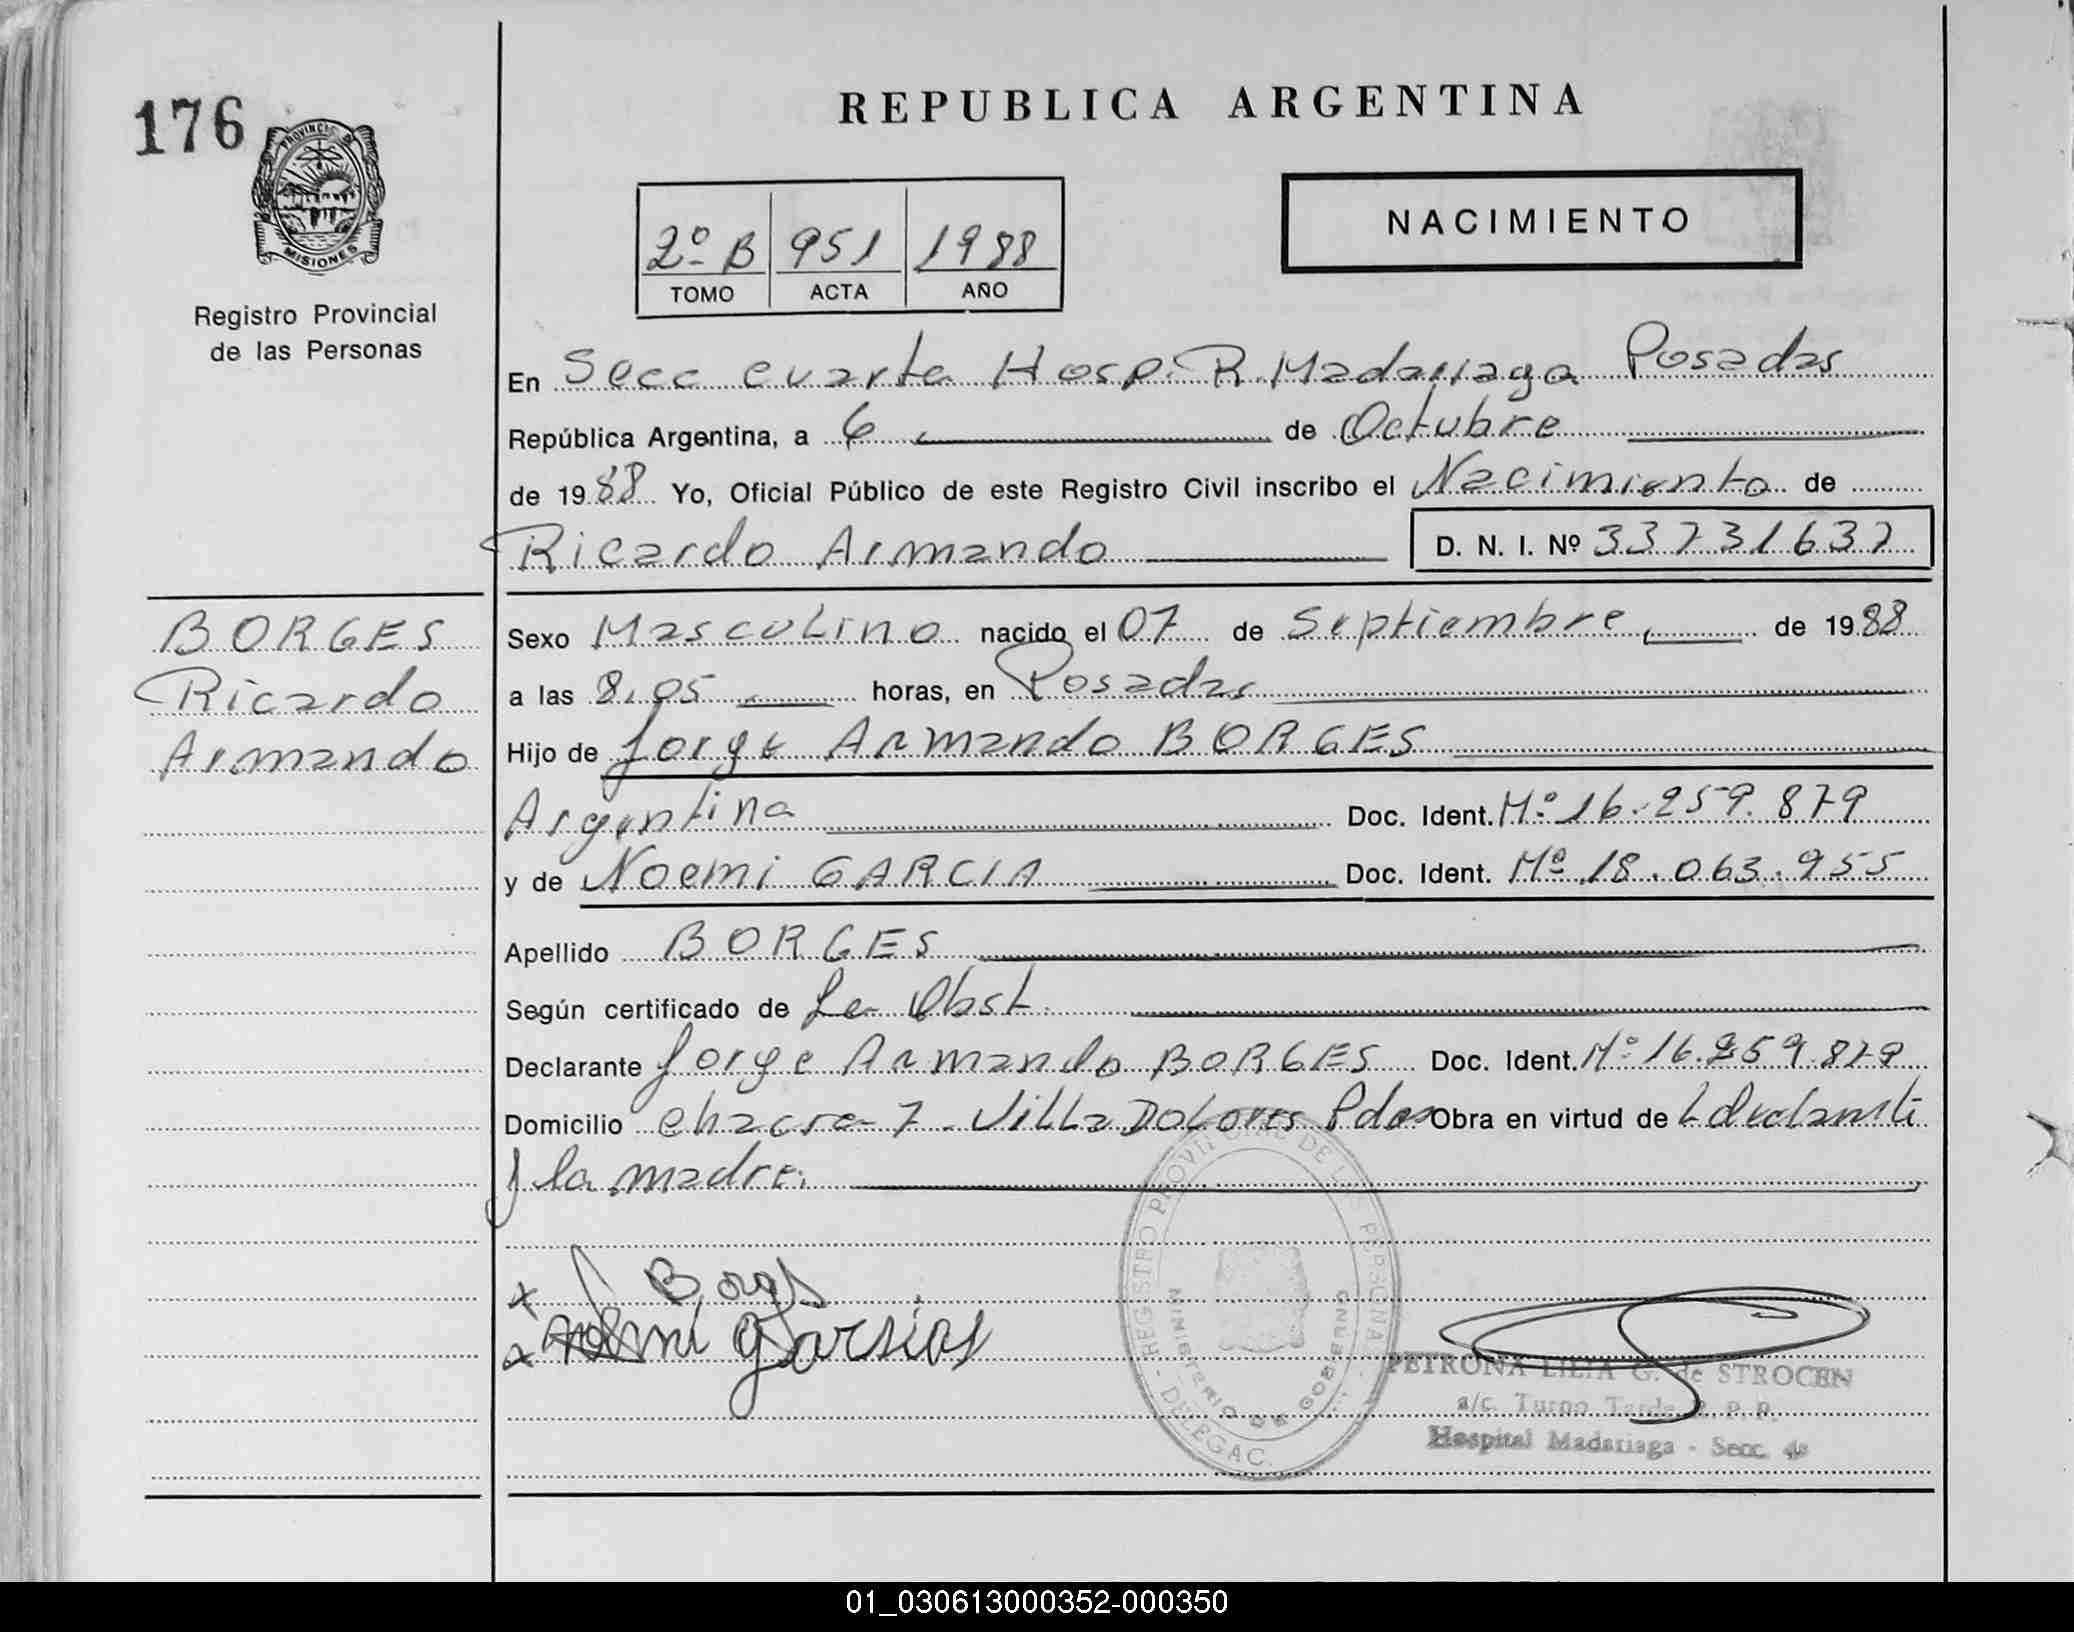 176
PROVINCIA DE
MISIONES
Registro Provincial
de las Personas
REPUBLICA ARGENTINA
NACIMIENTO
2º B 951 1988
TOMO ACTA AÑO
En Secc cuarta Hosp. R. Madariaga Posadas
República Argentina, a 6 de Octubre
de 1988 Yo, Oficial Público de este Registro Civil inscribo el Nacimiento de
Ricardo Armando D. N. I. Nº 33731637
BORGES
Ricardo
Armando
Sexo Masculino nacido el 07 de Septiembre, de 1988
a las 8,05 horas, en Posadas
Hijo de Jorge Armando BORGES
Argentina Doc. Ident. Mº 16.259.879
y de Noemi GARCIA Doc. Ident. Mº 18.063.955
Apellido BORGES
Según certificado de La Obst.
Declarante Jorge Armando BORGES Doc. Ident. Mº 16.259.879
Domicilio chacra 7 - Villa Dolores Pdas Obra en virtud de
y la madre.
REGISTRO PROVINCIAL DE LAS PERSONAS
MINISTERIO DE GOBIERNO
DELEGAC.
PETRONA LILIA G. de STROCEN
a/c. Turno Tarde R. P. P.
Hospital Madariaga - Secc. 4a
01_030613000352-000350